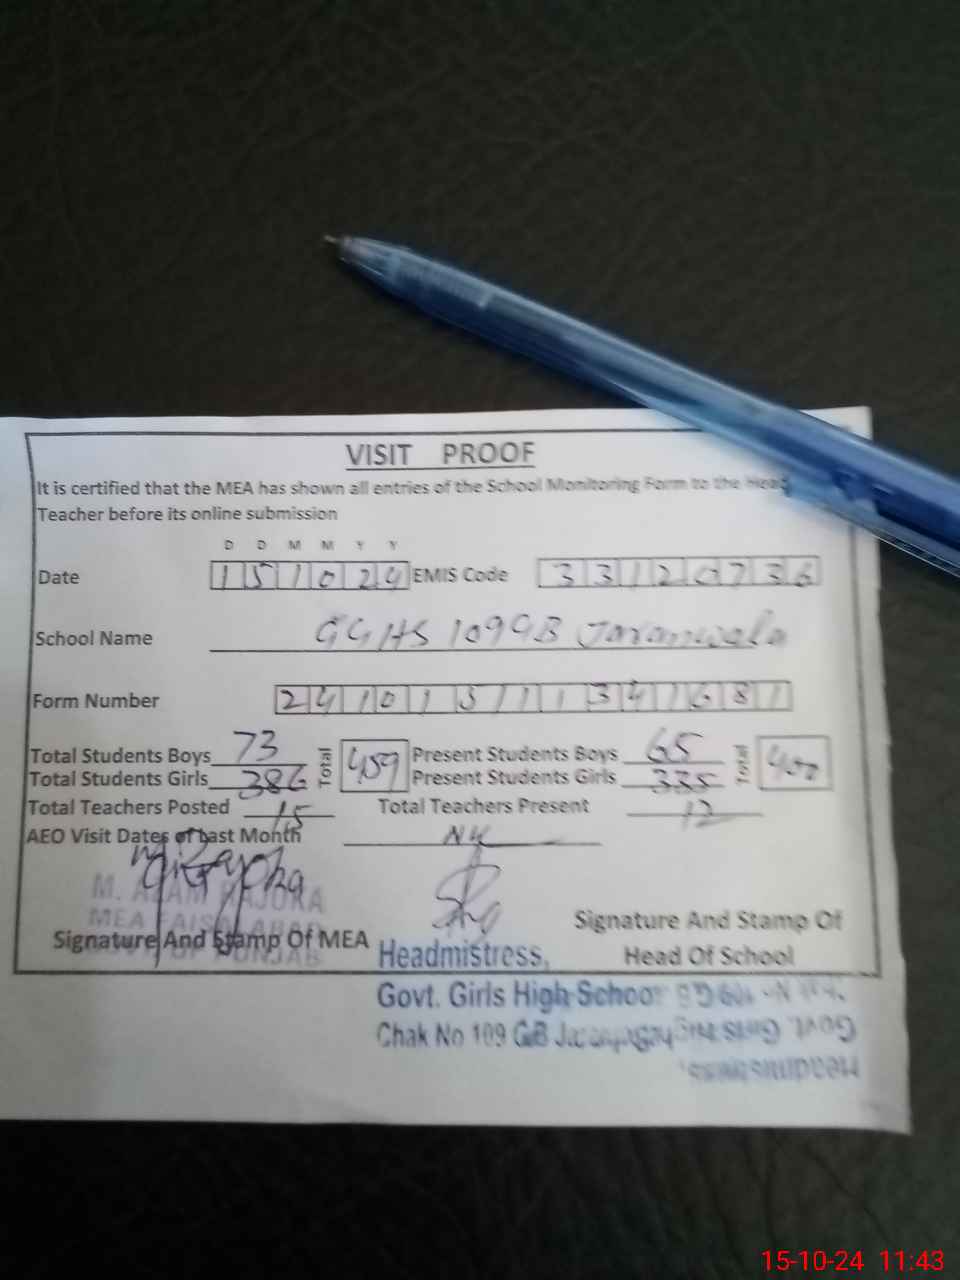 VISIT PROOF
It is certified that the MEA has shown all entries of the School Monitoring Form to the Head
Teacher before its online submission
D D M M Y Y
Date 151024 EMIS Code 33120736
School Name GGHS 109GB Jaranwala
Form Number 241015111341681
Total Students Boys 73 Total 459 Present Students Boys 65 Total 400
Total Students Girls 386 Present Students Girls 335
Total Teachers Posted 15 Total Teachers Present 12
AEO Visit Dates of Last Month
M. AZAM RAJOKA
MEA FAISALABAD
GOVT. OF PUNJAB
Signature And Stamp Of MEA
Signature And Stamp Of
Head Of School
Headmistress,
Govt. Girls High School
Chak No 109 GB
Headmistress,
Govt. Girls High School
15-10-24 11:43